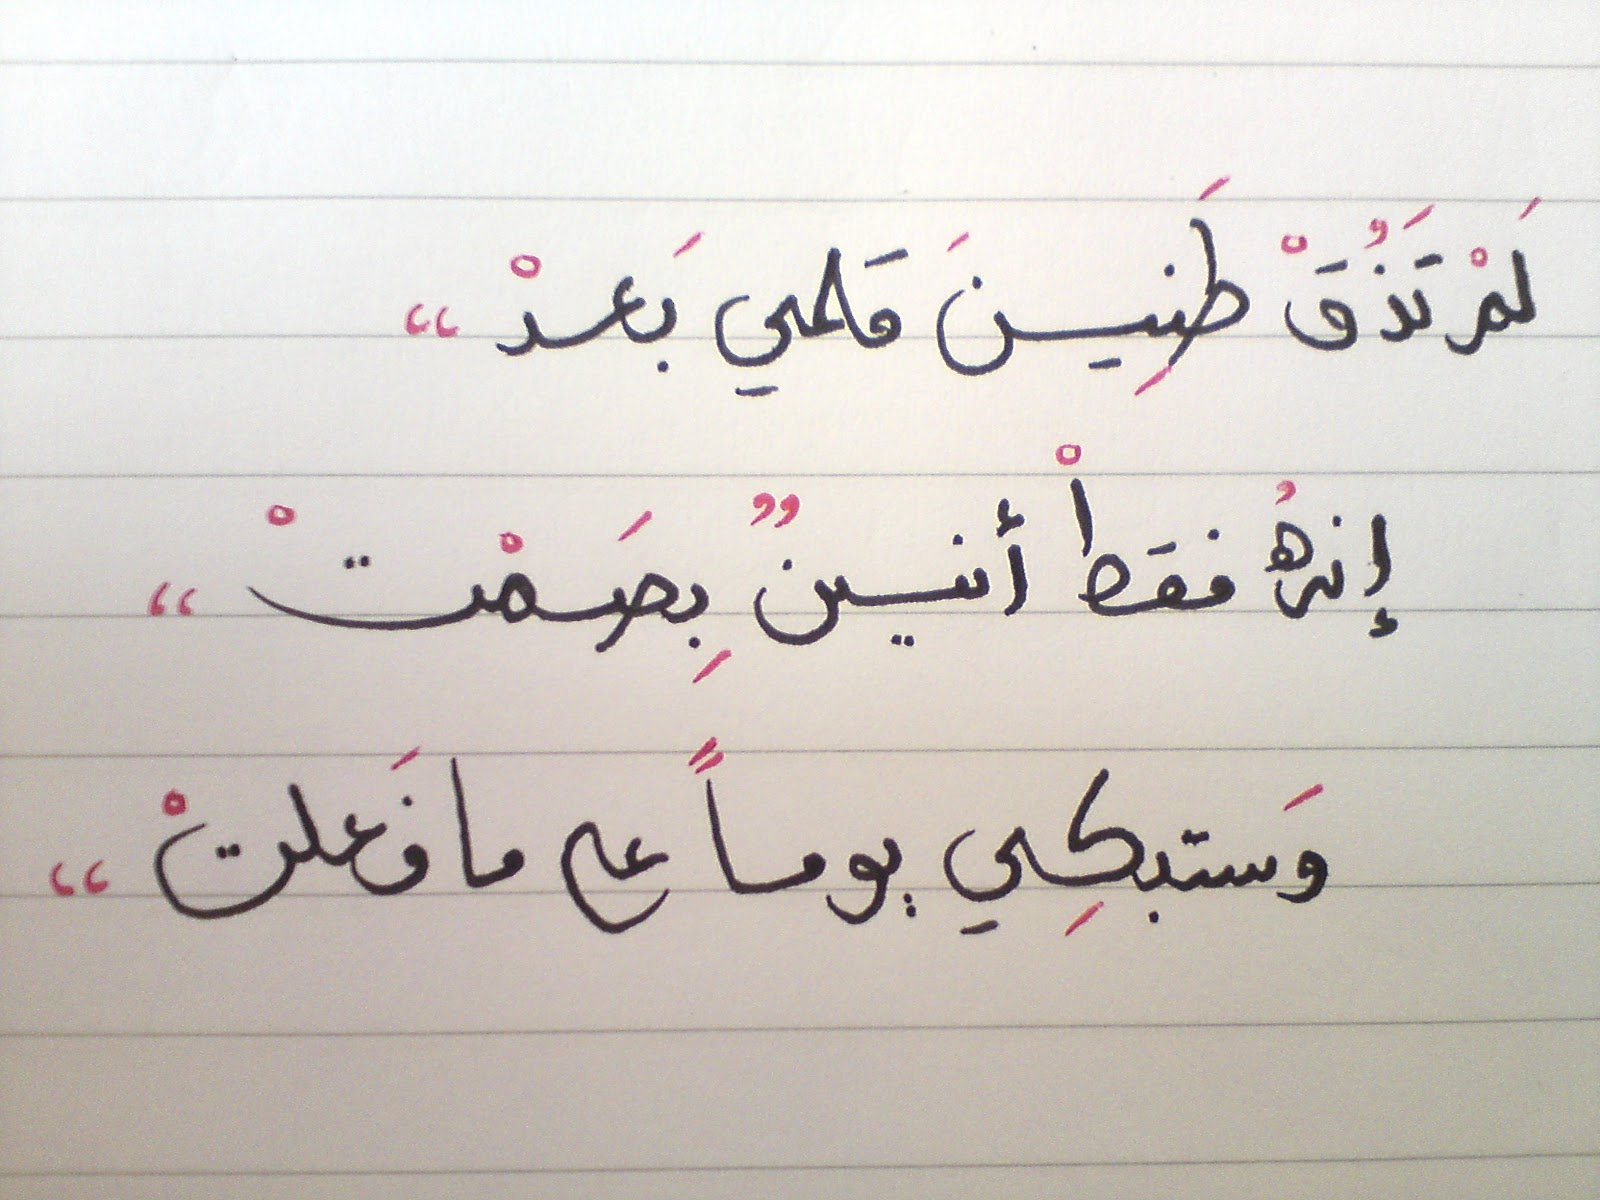 لَمْ تَذُقْ طَنِينَ قَلمي بَعدْ ،،
إنهُ فقطْ أنينٌ بِصَمْتْ ،،
وَستبكِي يوماً على ما فَعلتْ ،،